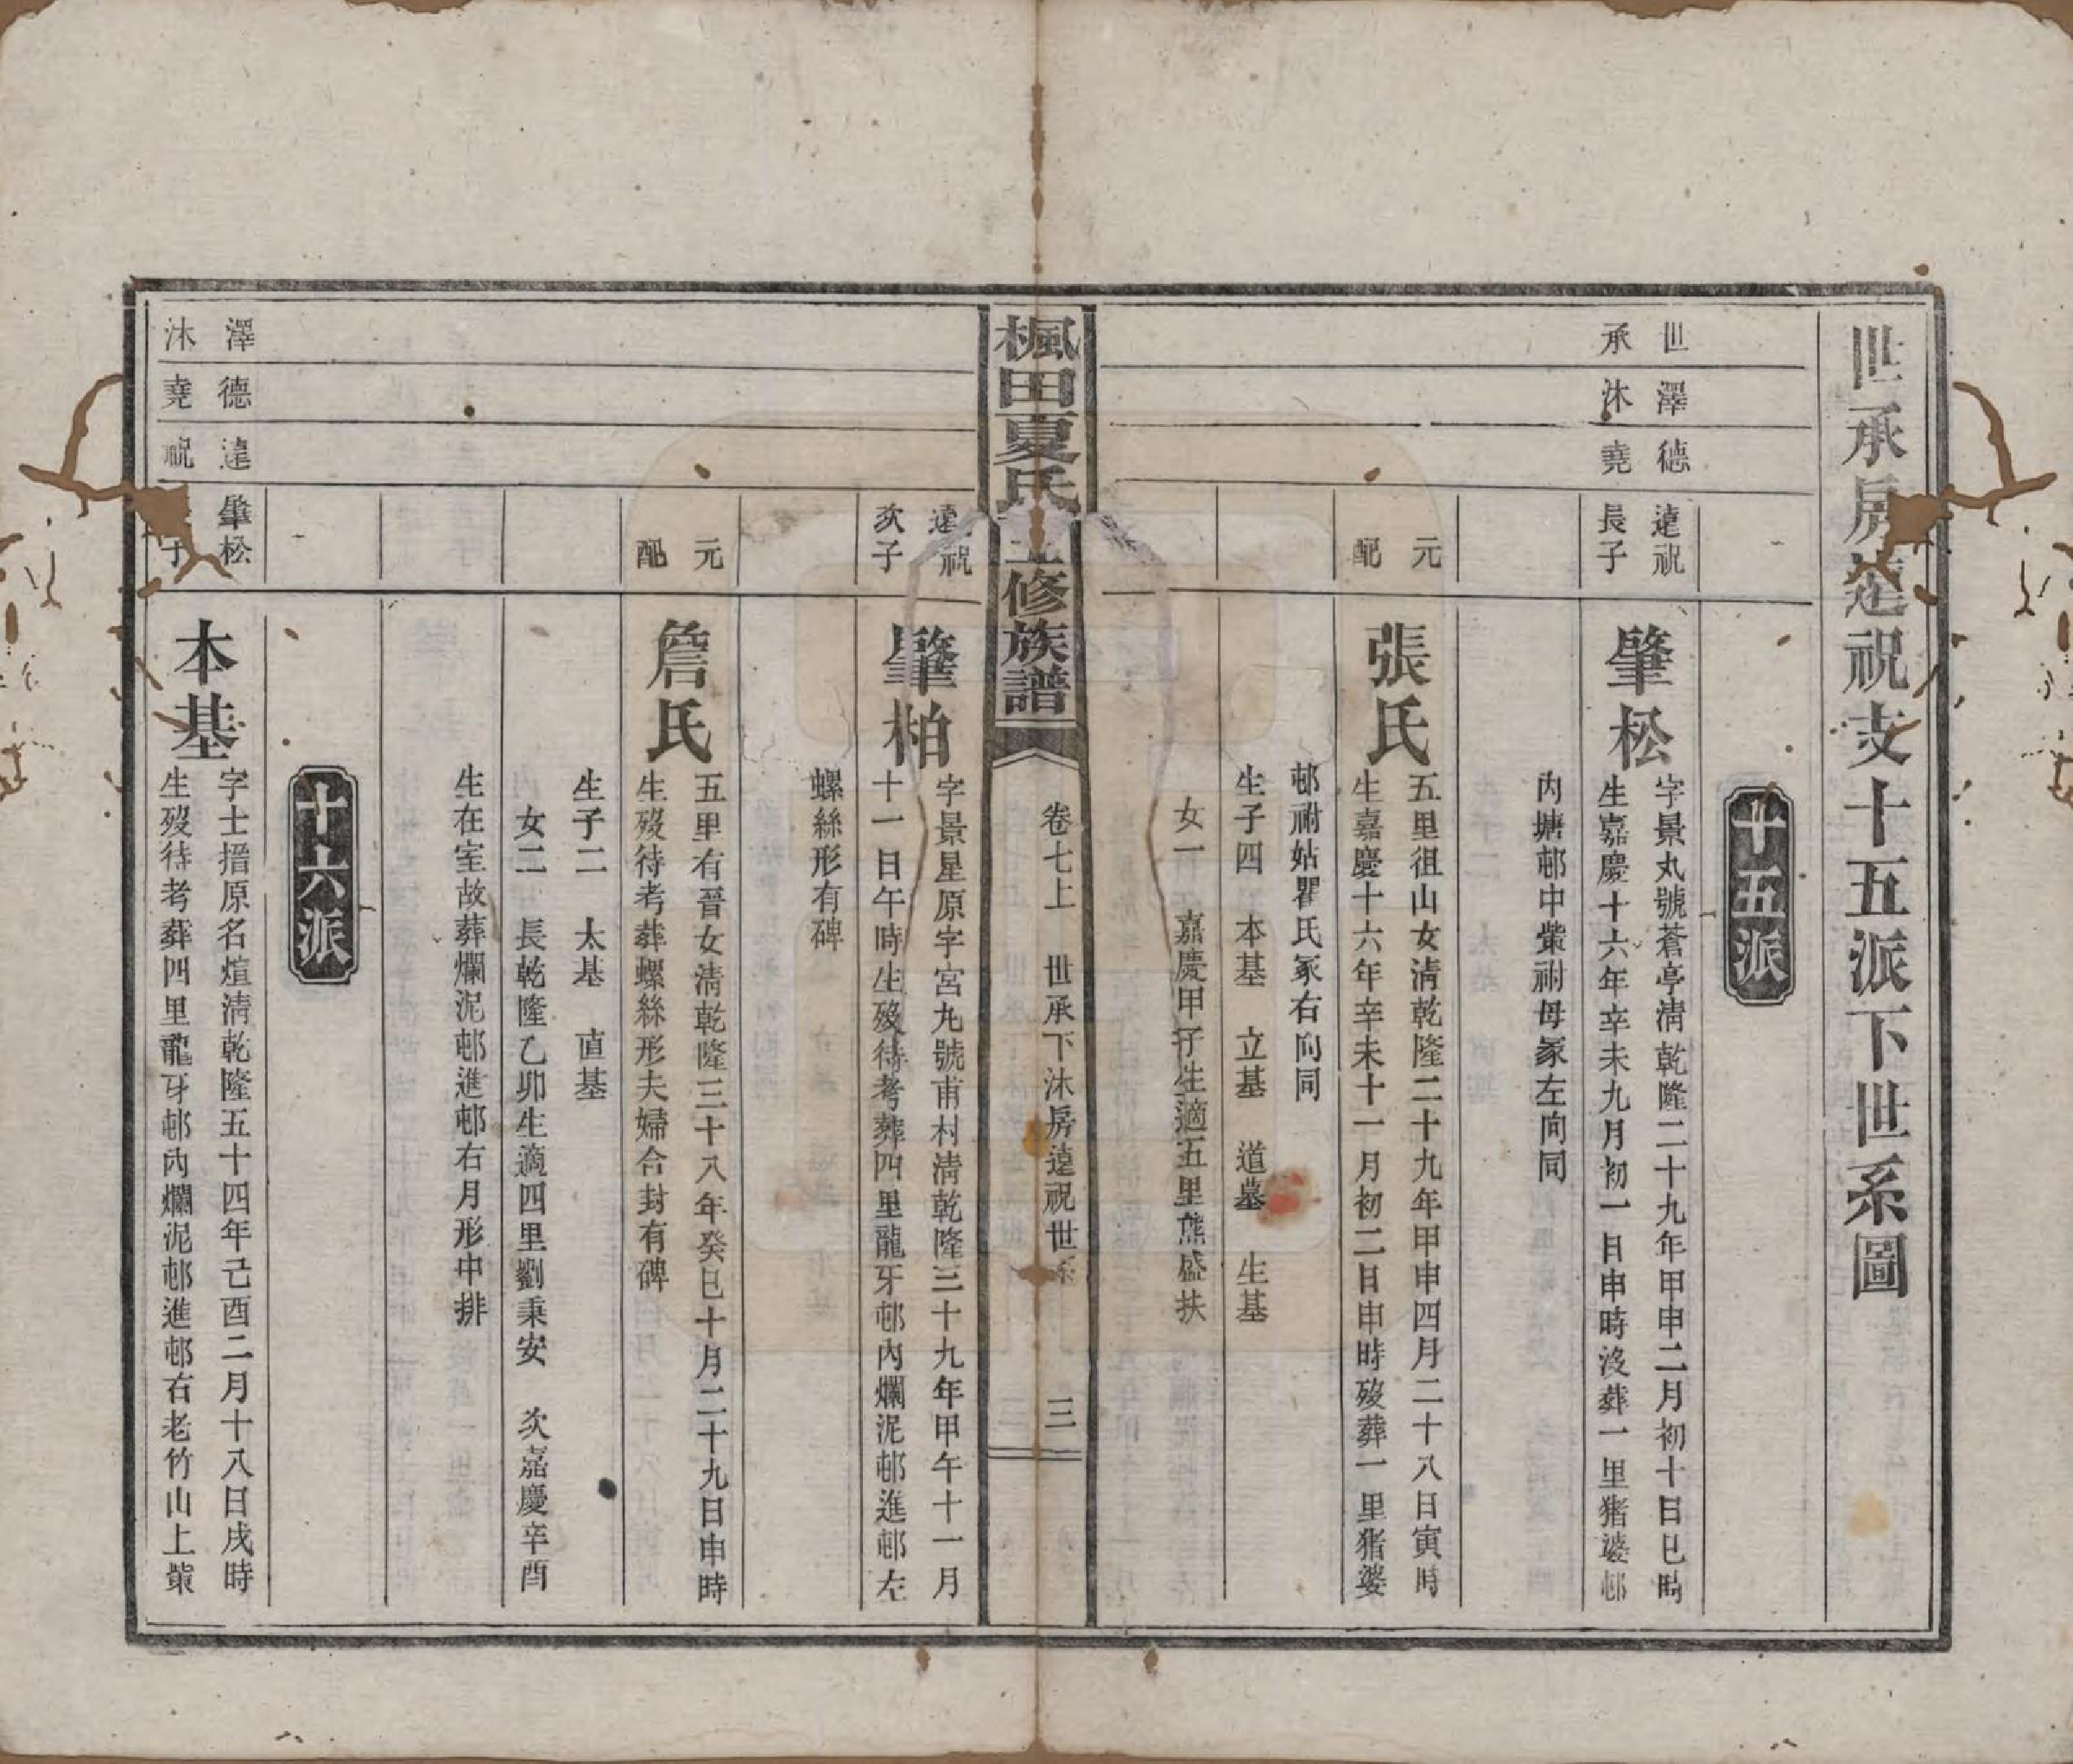 世承房遠祝支十五派下世系圖
十五派
世澤德
承沐堯
遠祝
長子
肇松
字景丸號蒼亭淸乾隆二十九年甲申二月初十日巳時
生嘉慶十六年辛未九月初一日申時沒葬一里猪婆邨
內塘邨中塋祔母冢左向同
元配
張氏
五里徂山女淸乾隆二十九年甲申四月二十八日寅時
生嘉慶十六年辛未十一月初二日申時歿葬一里猪婆
邨祔姑瞿氏冢右向同
生子四 本基 立基 道基 生基
女一 嘉慶甲子生適五里熊盛扶
楓田夏氏五修族譜
卷七上 世承下沐房遠祝世系
三
遠祝
次子
肇柏
字景星原字宮九號甫村淸乾隆三十九年甲午十一月
十一日午時生歿待考葬四里龍牙邨內爛泥邨進邨左
螺絲形有碑
元配
詹氏
五里有晉女淸乾隆三十八年癸巳十月二十九日申時
生歿待考葬螺絲形夫婦合封有碑
生子二 太基 直基
女二 長乾隆乙卯生適四里劉秉安 次嘉慶辛酉
生在室故葬爛泥邨進邨右月形中排
十六派
澤德遠
沐堯祝
肇松
子
本基
字士搢原名煊淸乾隆五十四年己酉二月十八日戌時
生歿待考葬四里龍牙邨內爛泥邨進邨右老竹山上塋